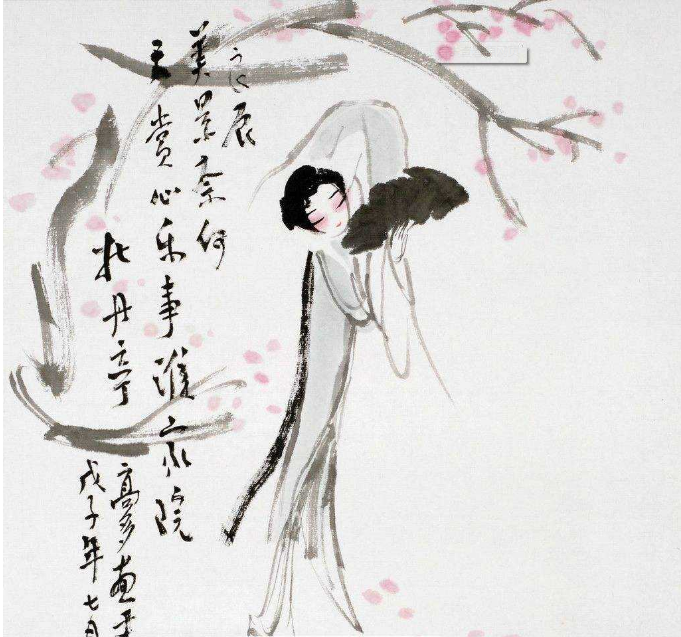 良辰
美景奈何
天赏心乐事谁家院
牡丹亭
高多画
戊子年七月